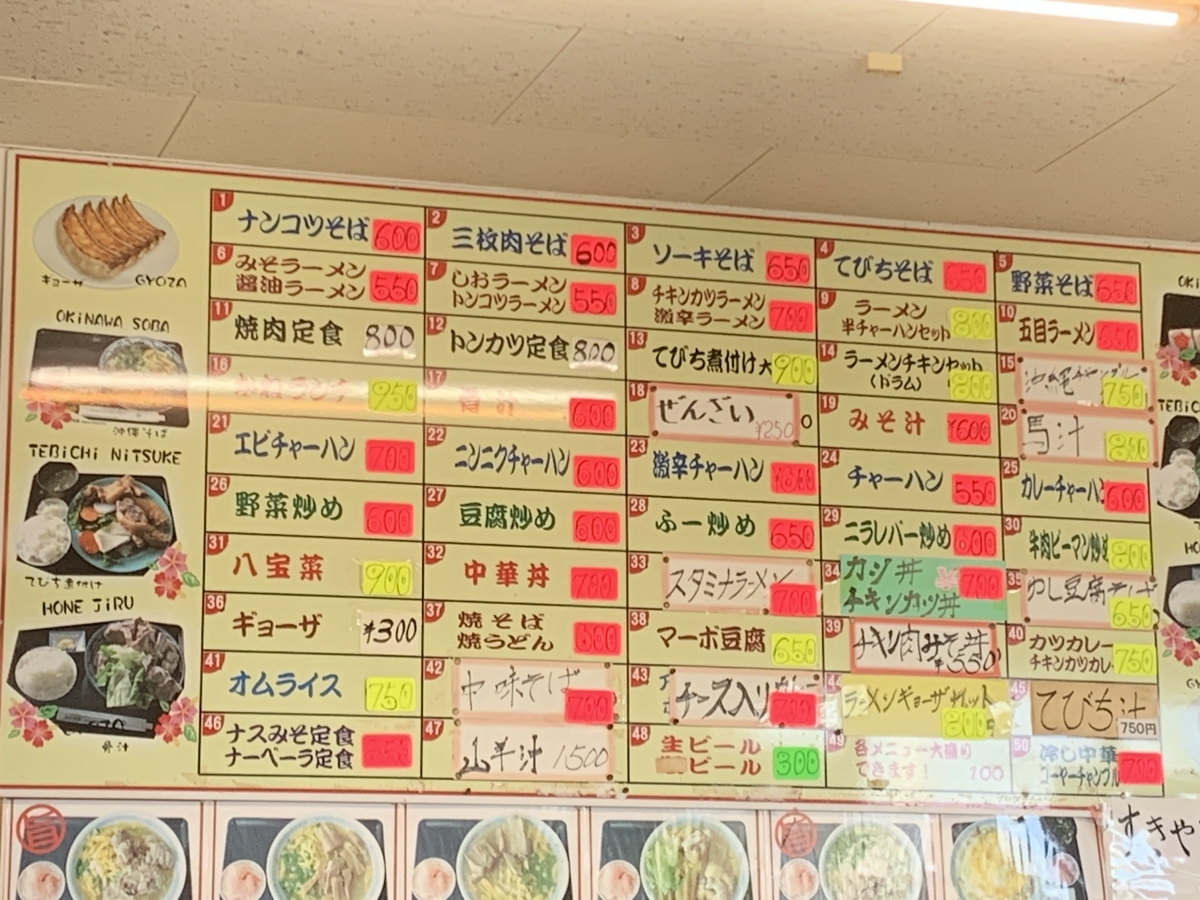 キョーザ GYOZA
OKiNAWA SOBA
沖縄そば
TEBiCHi NiTSUKE
てびち煮付け
HONE JiRU
骨汁
1 ナンコツそば 600
2 三枚肉そば 600
3 ソーキそば 650
4 てびちそば 650
5 野菜そば 650
6 みそラーメン
醤油ラーメン 550
7 しおラーメン
トンコツラーメン 550
8 チキンカツラーメン
激辛ラーメン 700
9 ラーメン
半チャーハンセット 800
10 五目ラーメン 650
11 焼肉定食 800
12 トンカツ定食 800
13 てびち煮付け大 900
14 ラーメンチキンセット
(ドラム) 800
15 沖縄チャンプル 750
16 950
17 600
18 ぜんざい ¥250 0
19 みそ汁 ¥600
20 馬汁 800
21 エビチャーハン 700
22 ニンニクチャーハン 600
23 激辛チャーハン ¥600
24 チャーハン 550
25 カレーチャーハン 600
26 野菜炒め 600
27 豆腐炒め 600
28 ふー炒め 650
29 ニラレバー炒め 600
30 牛肉ピーマン炒め 800
31 八宝菜 900
32 中華丼 700
33 スタミナラーメン 700
34 カツ丼 700
チキンカツ丼
35 ゆし豆腐そば 650
36 ギョーザ ¥300
37 焼そば
焼うどん 600
38 マーボ豆腐 650
39 チキン肉みそ丼 ¥550
40 カツカレー
チキンカツカレー 750
41 オムライス 750
42 中味そば 700
43 チーズ入りカレー 700
44 ラーメンギョーザセット 800
45 てびち汁 750円
46 ナスみそ定食
ナーベーラ定食 650
47 山羊汁 1500
48 生ビール
ビール 300
49 各メニュー大盛り
できます! 100
50 冷し中華
ゴーヤーチャンプル 700
すきや